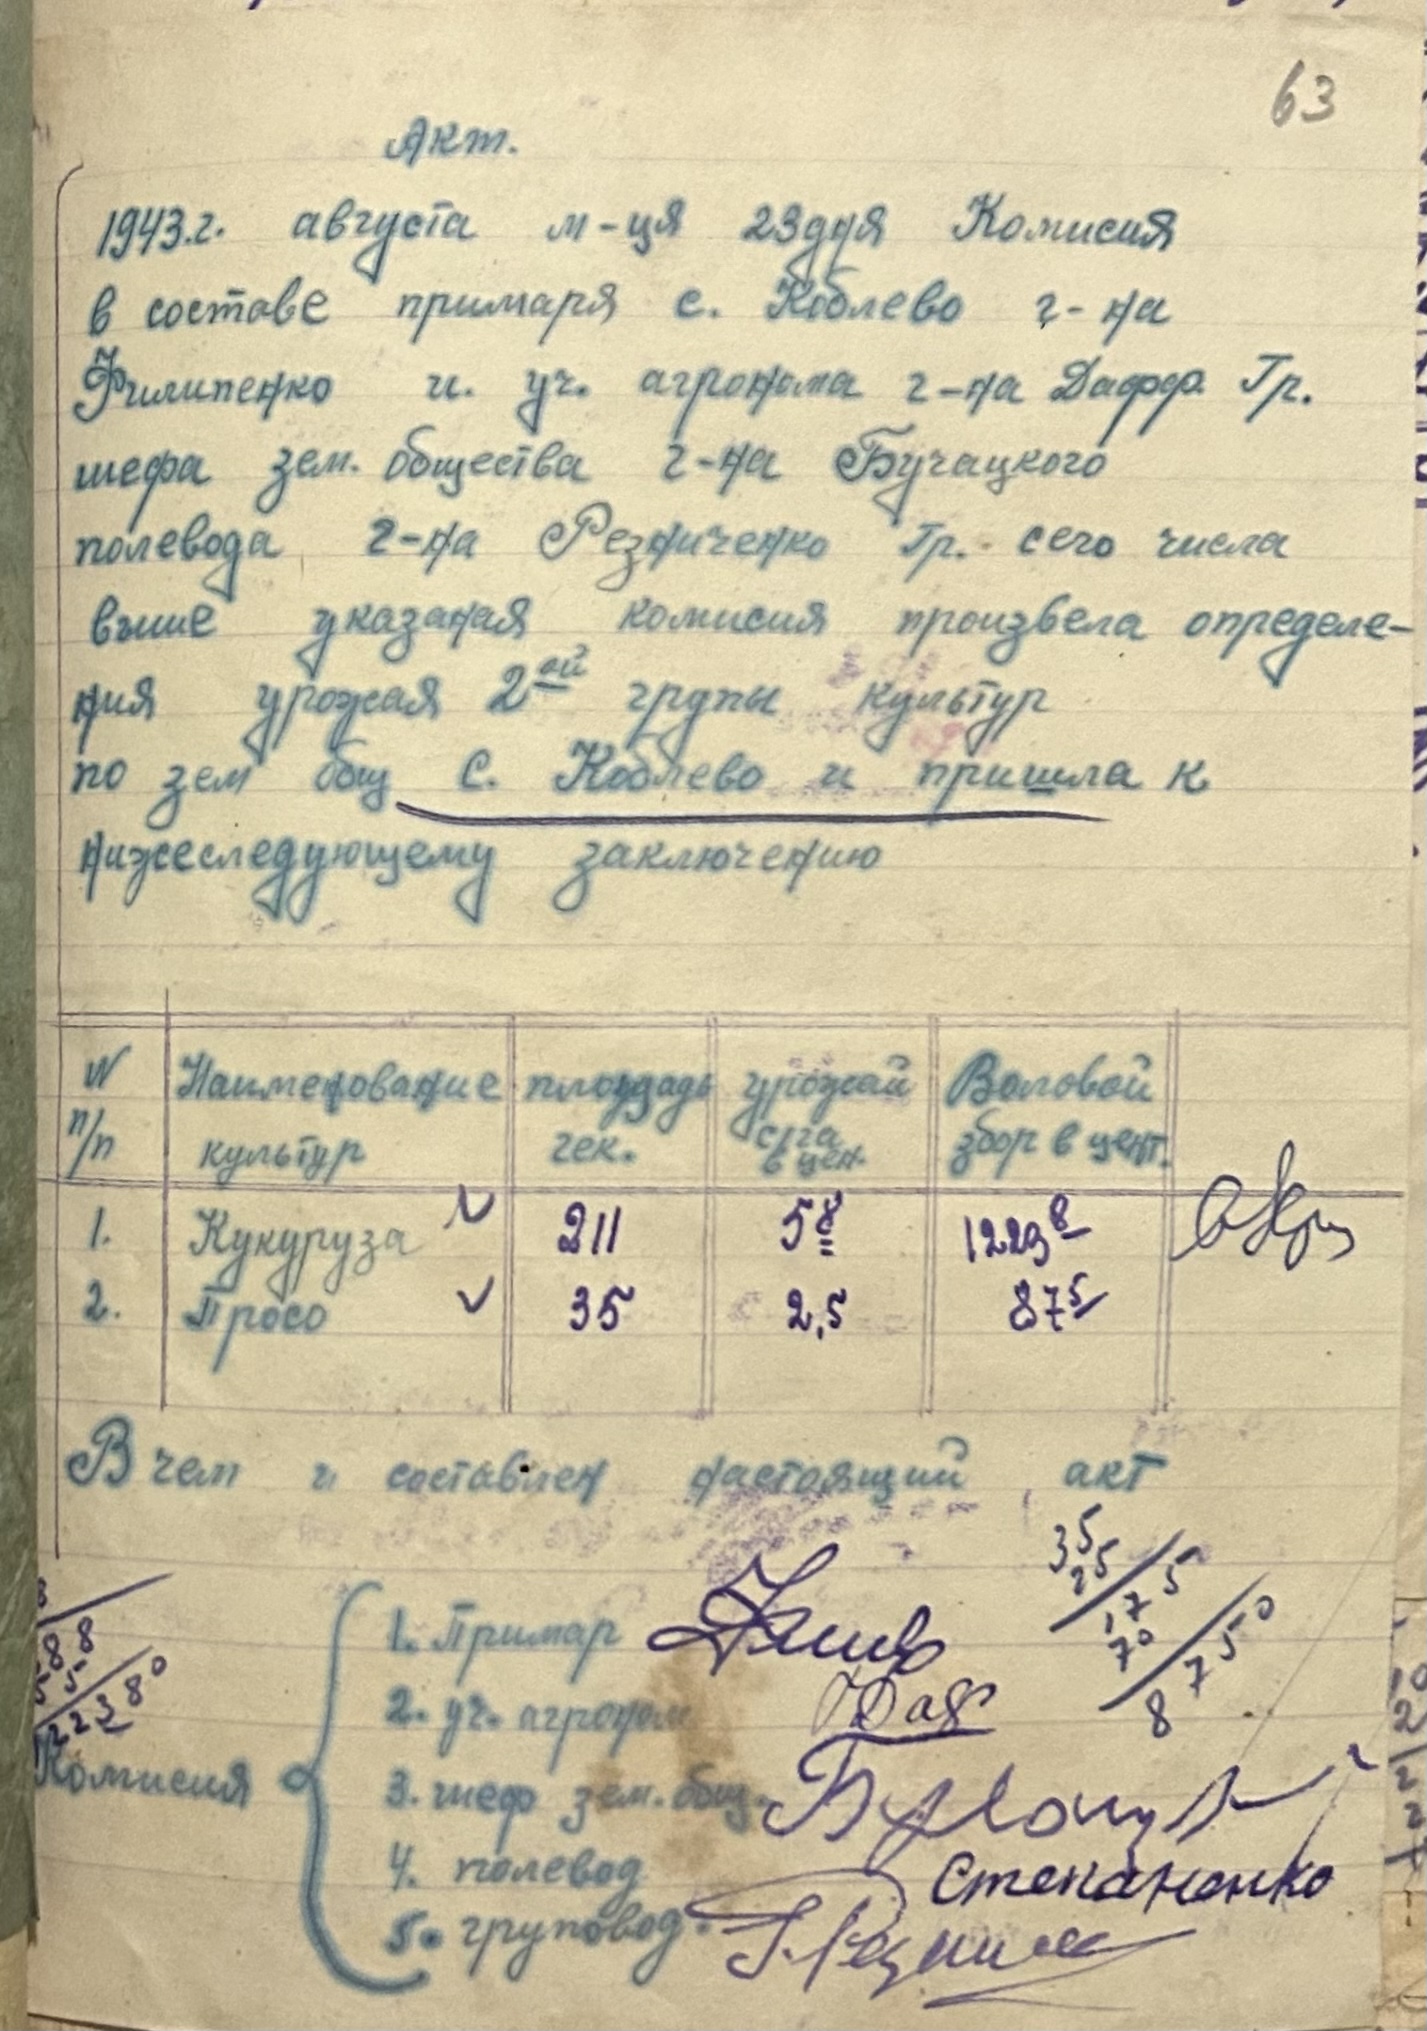 63
Акт.
1943.г. августа м-ця 23дня Комисия
в составе примаря с. Коблево г-на
Филипенко и. уч. агронома г-на Даффр. Гр.
шефа зем. общества г-на Бучацкого
полевода г-на Резниченко Гр. сего числа
выше указаная комисия произвела определе-
ния урожая 2ой групы культур
по зем общ с. Коблево и пришла к
нижеследующему заключению
N п/п Наименование культур площадь гек. урожай с/га в цен. Воловой збор в цент.
1. Кукуруза 211 5 8 1223 8
2. Просо 35 2,5 87 5
В чем и составлен настоящий акт
35
25
175
70
8750
Комисия
1. Примар
2. уч. агроном Даф
3. шеф зем. общ.
4. полевод Степаненко
5. груповод.